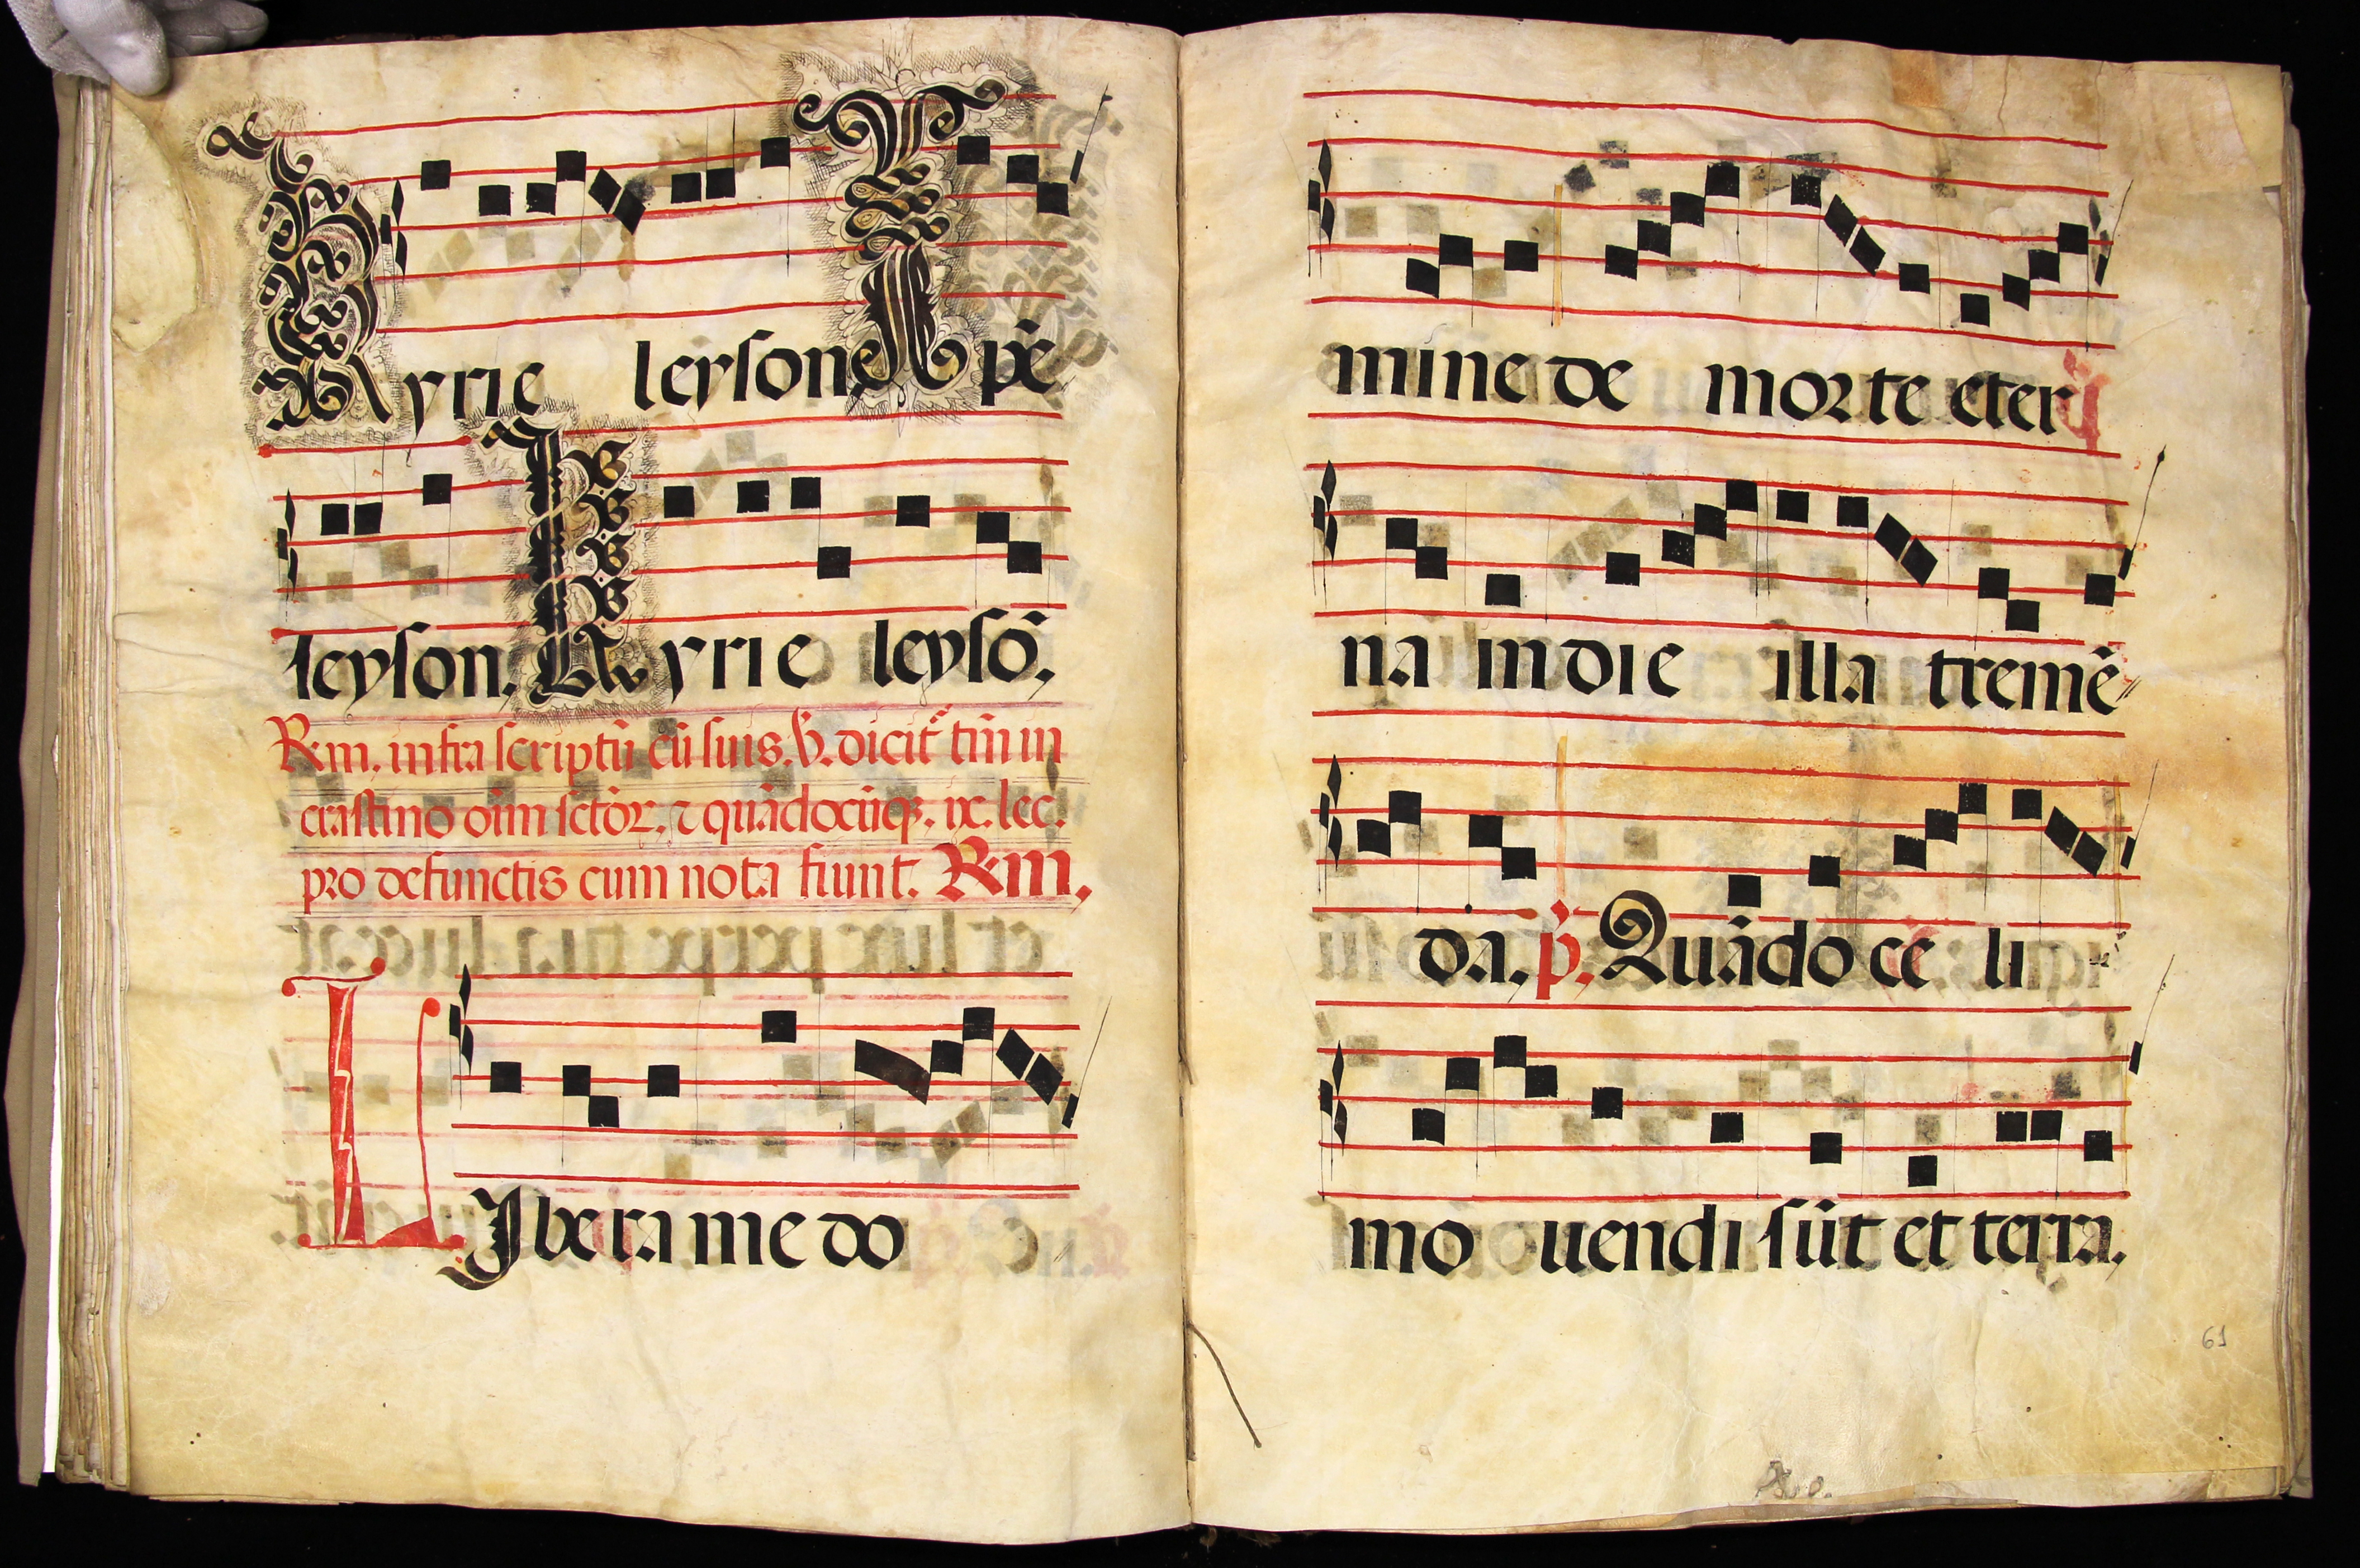 Kyrie leyson X pe
leyson. Kyrie leysō.
Rm. infra scriptū cū suis. V. dicit̃ tm̄ in
crastino oīm sctōr. ⁊ quādocūq̨. ix. lec.
pro defunctis cum nota fiunt. Rm.
LIbera me do
mine de morte eter
na in die illa tremē
da. p̃. Quādo ce li
mo uendi sūt et terra.
61